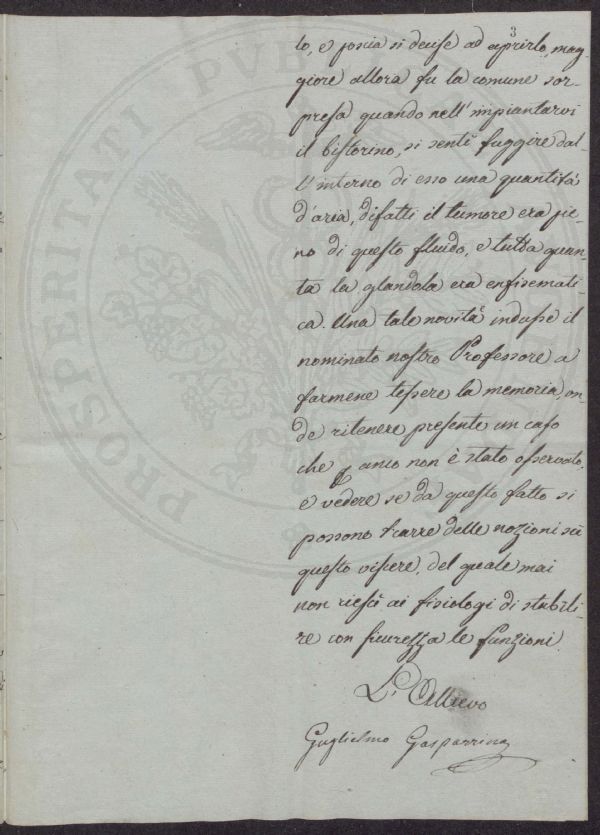 3
lo, e poscia si decise ad aprirlo, mag-
giore allora fu la comune sor-
presa quando nell'impiantarvi
il bistorino, si sentì fuggire dal-
l'interno di esso una quantità
d'aria, difatti il tumore era pie-
no di questo fluido, e tutta quan-
ta la glandola era enfisemati-
ca. Una tale novità indusse il
nominato nostro Professore a
farmene tessere la memoria, on-
de ritenere presente un caso
che anco non è stato osservato,
e vedere se da questo fatto si
possono trarre delle nozioni su
questo viscere, del quale mai
non riescì ai fisiologi di stabili-
re con sicurezza le funzioni.
L'Allievo
Guglielmo Gasparrina
PROSPERITATI PVB